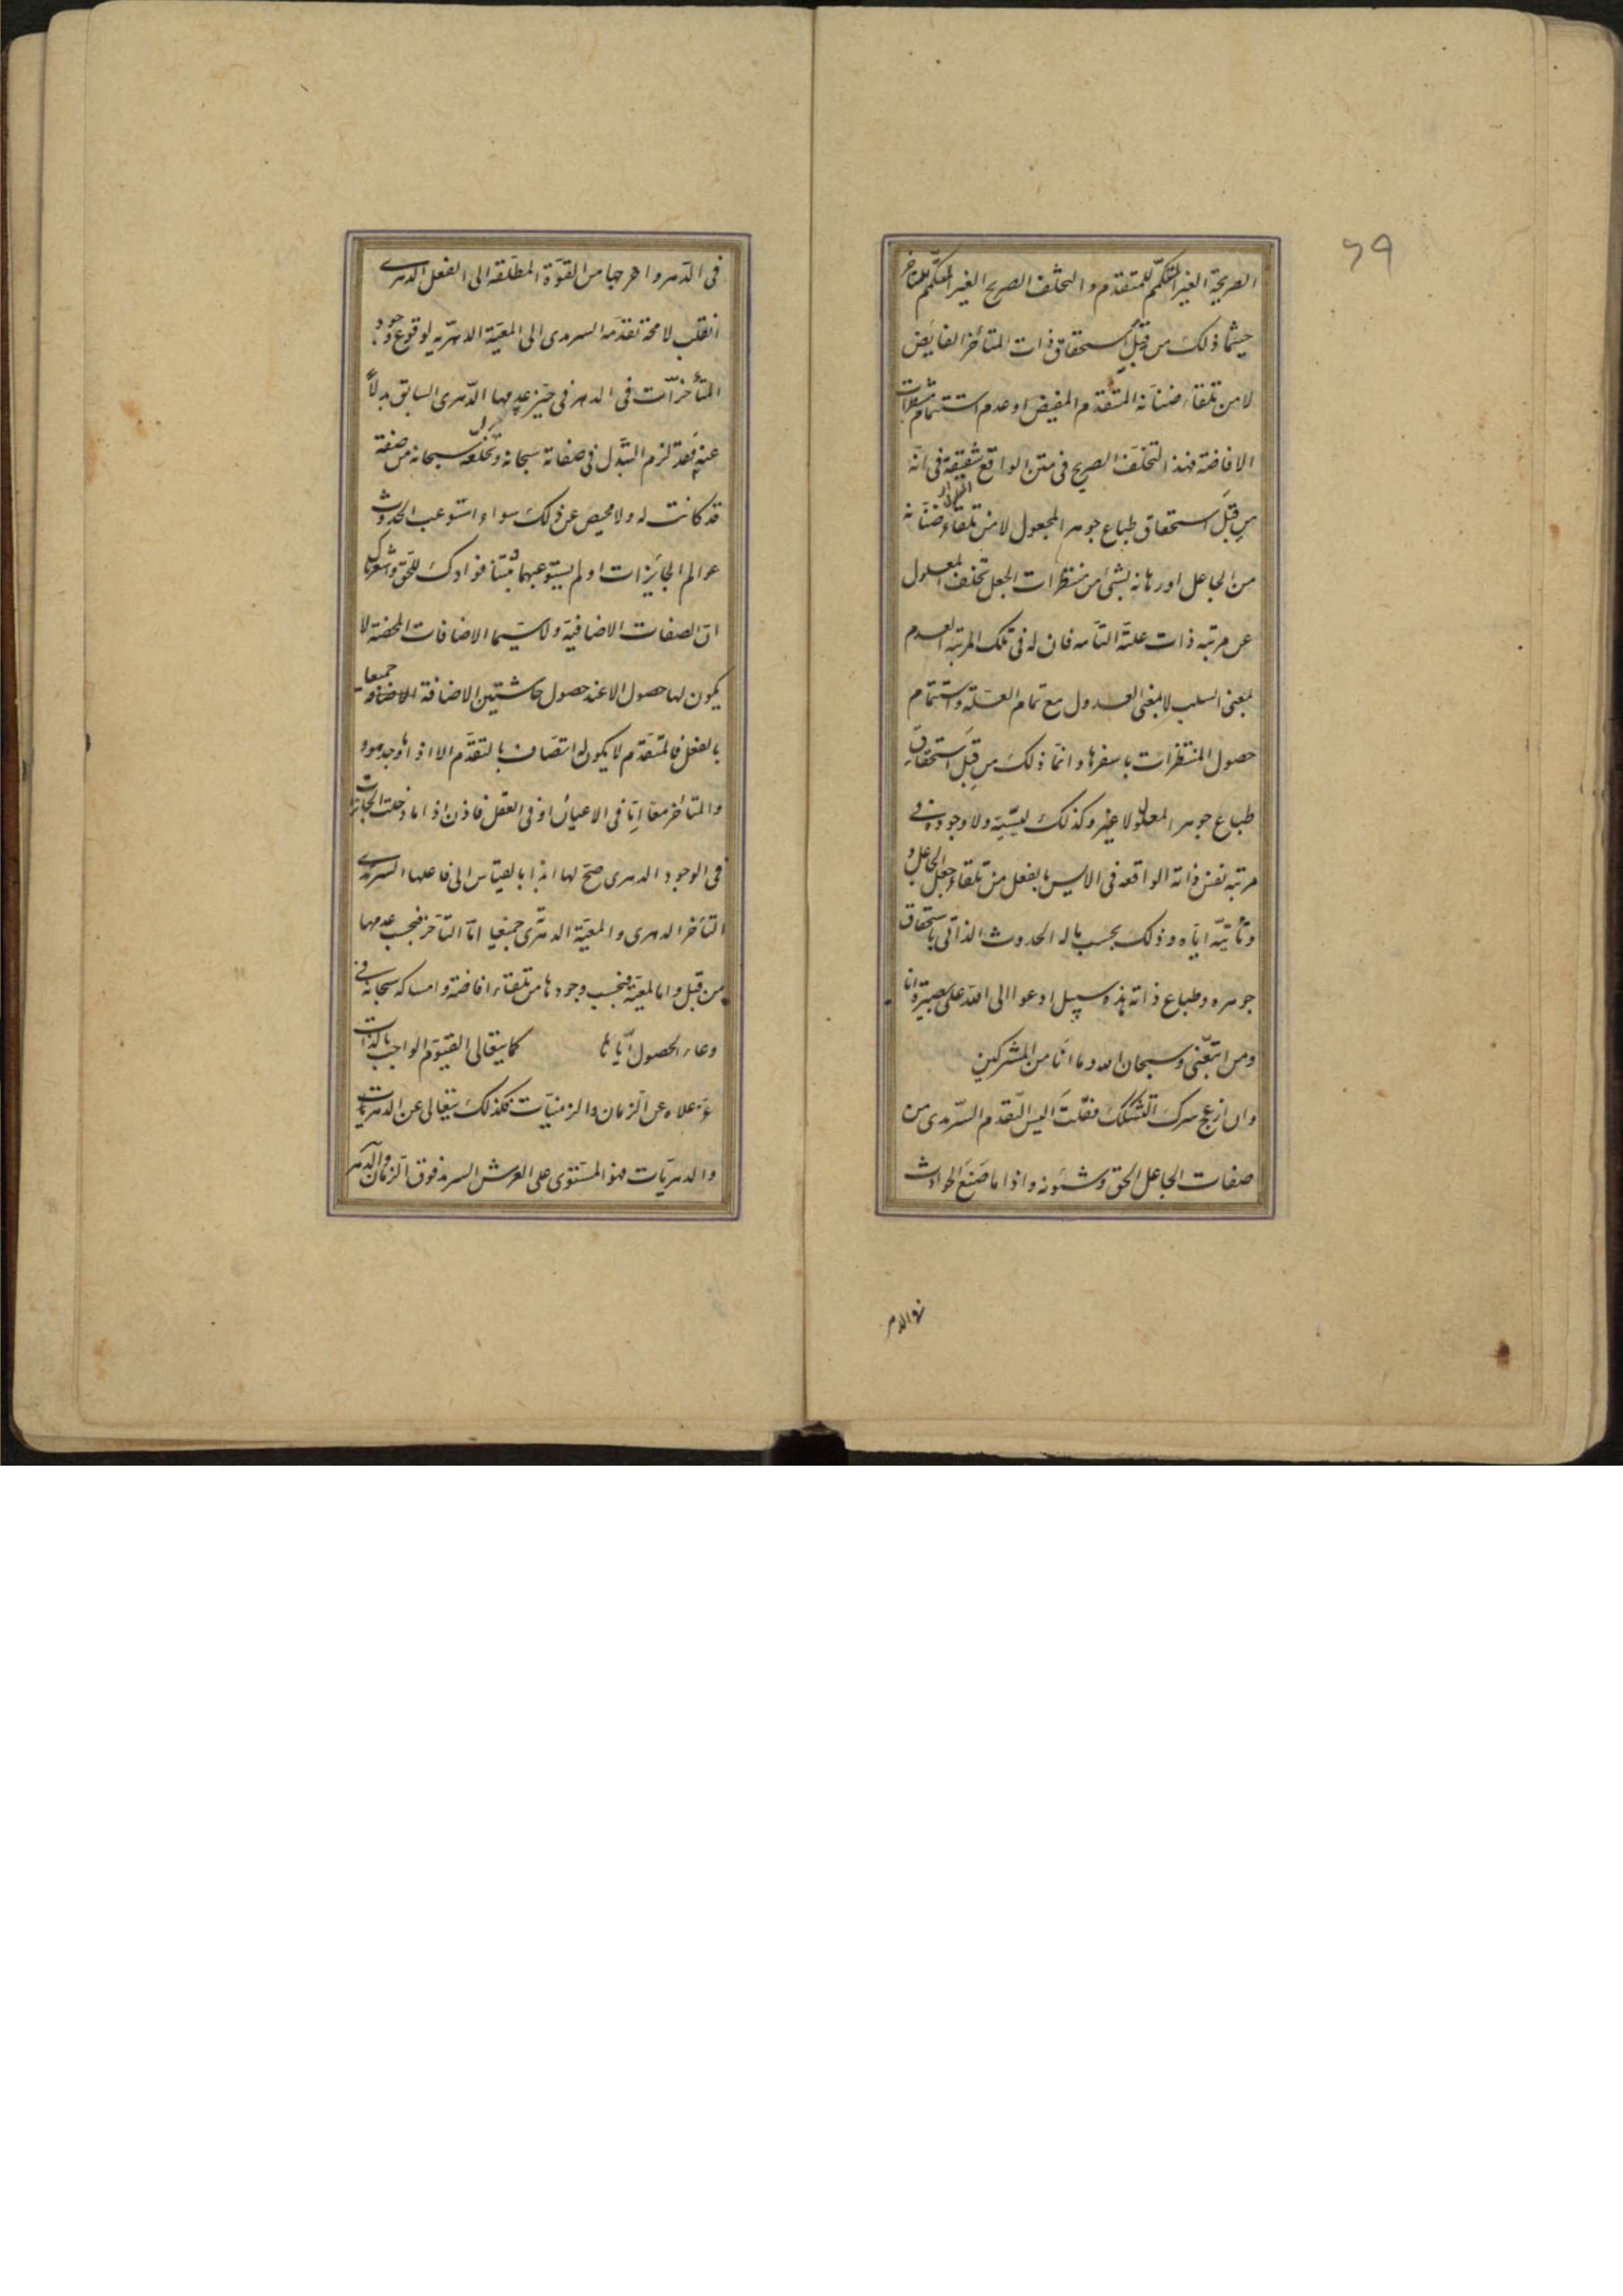 ٦٩
الصريحة الغير المتكمّم للمتقدم والتخلف الصريح الغير المتكمّم للمتاخر
حيثما ذلك من قِبَل استحقاق ذات المتأخر الفايض
لا من تلقاء ضنانة المتقدم المفيض او عدم استتمام
الافاضة فهذا التخلف الصريح فى متن الواقع شقيقة فى انه
من قِبَل استحقاق طباع جوهر المجعول لا من تلقاء ضنانة
من الجاعل او رهانه بشئ من منتظرات الجعل تخلف المعلول
عن مرتبه ذات علته التامه فان له فى تلك المرتبه العدم
بمعنى السلب لا بمعنى العدول مع تمام العلة واستتمام
حصول المنتظرات باسفرها وانما ذلك من قِبَل استحقاق
طباع جوهر المعلول لا غير وكذلك ليسيّته ولا وجوده فى
مرتبه نفس ذاته الواقعه فى الايس بالفعل من تلقاء جعل الجاعل و
تأييسه اياه وذلك بحسب ماله الحدوث الذاتى باستحقاق
جوهره وطباع ذاته هذه سبيلى ادعوا الى الله على بصيرة انا
ومن اتبعنى وسبحان الله وما انا من المشركين
وان ازعج سرك التشكك فقلتَ اليس التقدم السرمدى من
صفات الجاعل الحق وشئونه واذا ما صَنَعَ الحوادث
فى الدهر واخرجها من القوة المطلقه الى الفعل الدهرى
انقلب لا محة تقدمه السرمدى الى المعية الدهريه لوقوع وجود
المتأخرات فى الدهر فى حيز عدمها الدهرى السابق بدلاً
عنه فقد لزم التبدل فى صفاته سبحانه وتخلعه سبحانه من صفة
قد كانت له ولا محيص عن ذلك سواء استوعب الحدوث
عوالم الجايزات او لم يستوعبها ثبتنا فؤادك للحق
ان الصفات الاضافية ولا سيما الاضافات المحضة لا
يكون لها حصول الا عند حصول حاشيتين الاضافة جميعا
بالفعل فالمتقدم لا يكون له اتصاف بالتقدم الا اذا وجد هو
والمتأخر معا اما فى الاعيان او فى العقل فاذن اذا ما دخلت الجايزات
فى الوجود الدهرى صحّ لها اذا بالقياس الى فاعلها السرمدى
التأخر الدهرى والمعية الدهرى جميعا اما التأخر فبحسب عدمها
من قبل واما المعية فبحسب وجودها من تلقاء افاضته وامساكه سبحانه فى
وعاء الحصول اياها كما يتعالى القيوم الواجب بالذات
عز علاه عن الزمان والزمنيات فكذلك يتعالى عن الدهر
والدهريات فهو المستوى على العرش السرمد فوق الزمان والدهر